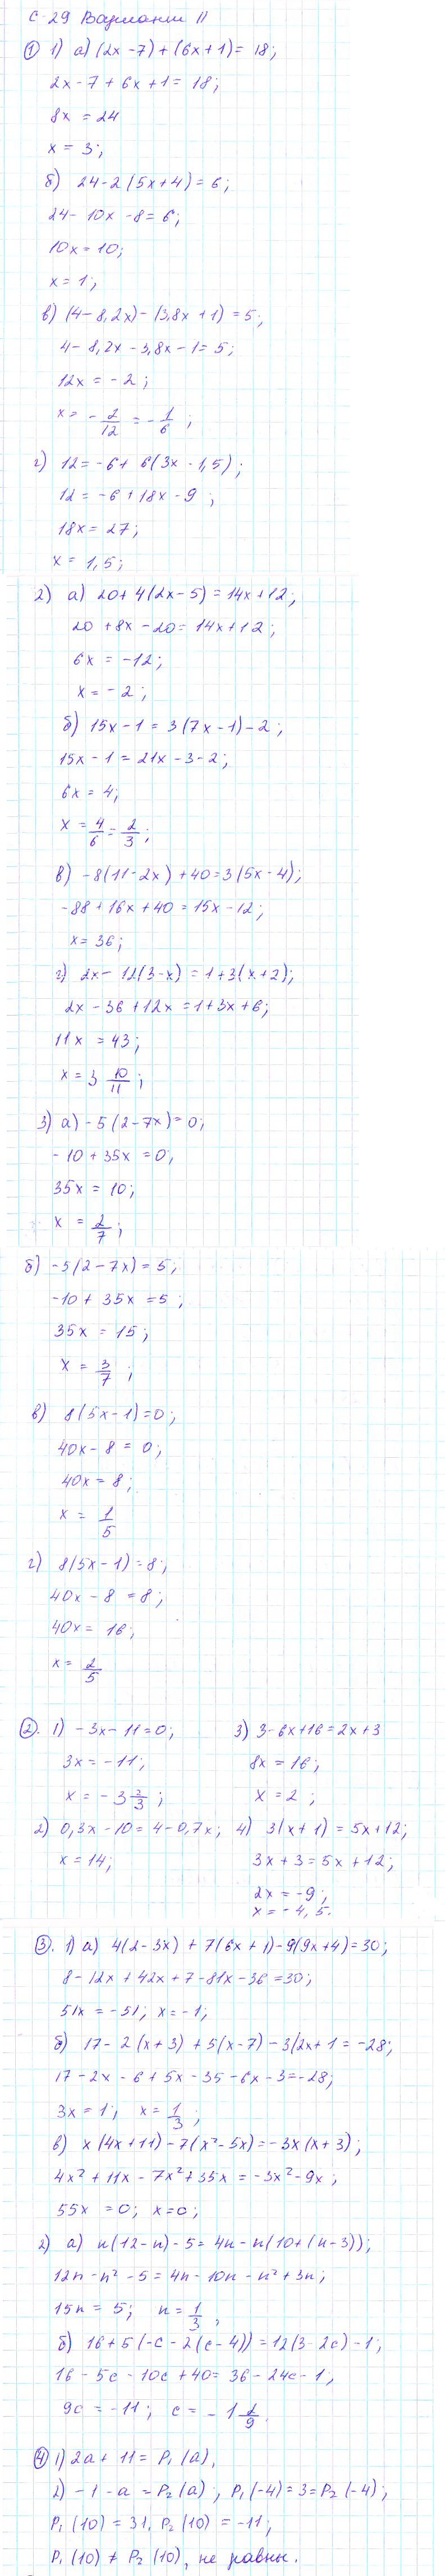 С-29 Вариант II
① 1) а) (2x-7)+(6x+1)= 18;
2x-7+6x+1=18;
8x = 24
x = 3;
б) 24-2(5x+4)=6;
24-10x-8=6;
10x=10;
x=1;
в) (4-8,2x)-(3,8x+1)=5;
4-8,2x-3,8x-1=5;
12x=-2;
x=-2/12=-1/6;
г) 12=-6+6(3x-1,5);
12=-6+18x-9;
18x=27;
x=1,5;
2) а) 20+4(2x-5)=14x+12;
20+8x-20=14x+12;
6x=-12;
x=-2;
б) 15x-1=3(7x-1)-2;
15x-1=21x-3-2;
6x=4;
x=4/6=2/3;
в) -8(11-2x)+40=3(5x-4);
-88+16x+40=15x-12;
x=36;
г) 2x-12(3-x)=1+3(x+2);
2x-36+12x=1+3x+6;
11x=43;
x=3 10/11;
3) а) -5(2-7x)=0;
-10+35x=0;
35x=10;
x=2/7;
б) -5(2-7x)=5;
-10+35x=5;
35x=15;
x=3/7;
в) 8(5x-1)=0;
40x-8=0;
40x=8;
x=1/5
г) 8(5x-1)=8;
40x-8=8;
40x=16;
x=2/5
②. 1) -3x-11=0;
3x=-11;
x=-3 2/3;
2) 0,3x-10=4-0,7x;
x=14;
3) 3-6x+16=2x+3
8x=16;
x=2;
4) 3(x+1)=5x+12;
3x+3=5x+12;
2x=-9;
x=-4,5.
③. 1) а) 4(2-3x)+7(6x+1)-9(9x+4)=30;
8-12x+42x+7-81x-36=30;
51x=-51; x=-1;
б) 17-2(x+3)+5(x-7)-3(2x+1=-28;
17-2x-6+5x-35-6x-3=-28;
3x=1; x=1/3;
в) x(4x+11)-7(x²-5x)=-3x(x+3);
4x²+11x-7x²+35x=-3x²-9x;
55x=0; x=0;
2) а) n(12-n)-5=4n-n(10+(n-3));
12n-n²-5=4n-10n-n²+3n;
15n=5; n=1/3;
б) 16+5(-c-2(c-4))=12(3-2c)-1;
16-5c-10c+40=36-24c-1,
9c=-11; c=-1 2/9.
④ 1) 2a+11=P₁(a),
2) -1-a=P₂(a); P₁(-4)=3=P₂(-4);
P₁(10)=31. P₂(10)=-11;
P₁(10)≠P₂(10), не равны.